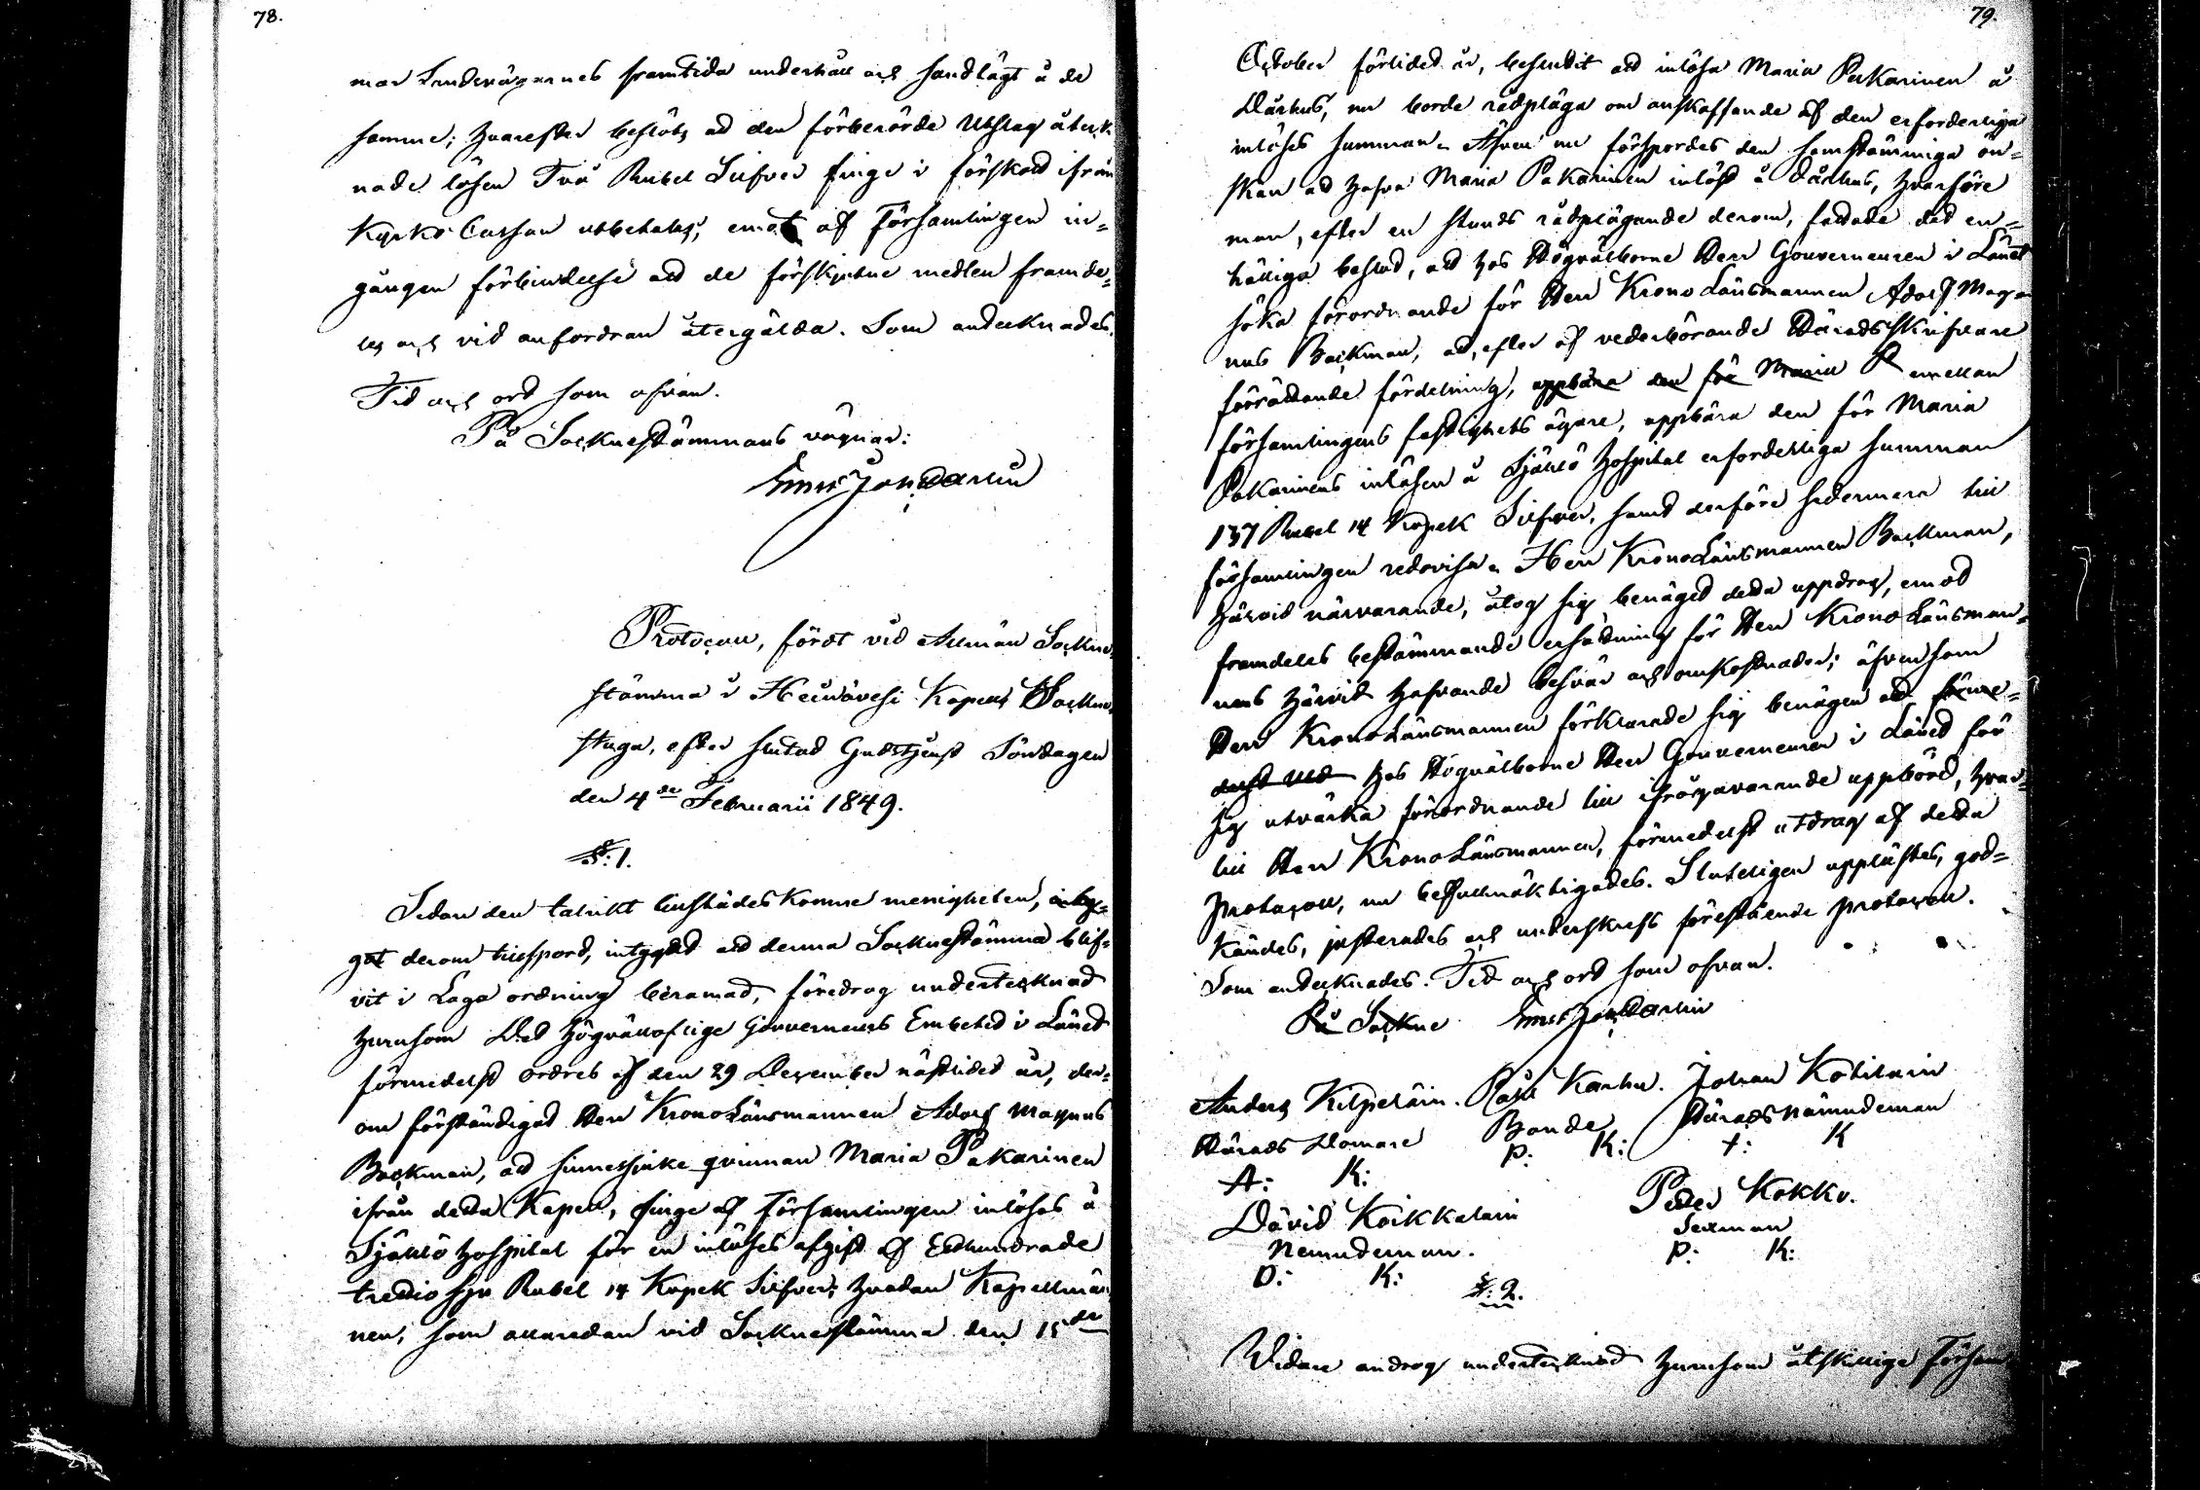 78.
mar Sundevägarnes framtida underhåll och handlagt å de
samme; hvarefter beslöts ad den förberörde Utslag åteck
nade lösen Två Rubel Silfver finge i förskott ifrån
Kyrko Cassan utbetalas, emot af Församlingen in=
gången förbindelse ad de förskjutne medlen framde=
les och vid anfordran återgälda. Som antecknades.
Tid och ort som ofvan.
På Sockneståmmans vägnar:
Protocoll, fördt vid Allmän Sockne
stämma i Heinävesi Kapells Sockne
stuga, efter slutad Gudstjenst Söndagen
den 4de Februarii 1849.
§: 1.
Sedan den talrikt tillstädes komne menigheten,
gat derom tillspord, intygat ad denna Socknestämma blif=
vit i Laga ordning beramad, föredrog undertecknad
hurusom Det Högvälloflige Gouverneurs Embetet i Länet
förmedelst ordres af den 29 December nästlidet år, der=
om förständigat Herr KronoLänsmannen Adolf Magnus
Backman, ad sinnessjuke qvinnan Maria Pakarinen
ifrån detta Kapell, finge af Församlingen inlösas å
Själlö Hospital för en inlösens afgift af Etthundrade
trettio sju Rubel 14 Kopek Silfver; hvadan Kapellmän
nen, som allaredan vid Socknestämma den 15de
79.
October förlidet år, beslutit ad inlösa Maria Pakarinen å
Dårhus, nu borde rådpläga om anskaffande af den erforderliga
inlösens summan. Äfven nu försportes den samstämmiga ön=
skan ad hafva Maria Pakarinen inlöst å Dårhus, hvarföre
man, efter en stunds rådplägande derom, fattade det en=
hälliga beslut, ad hos Högvälborne Herr Gouverneuren i Länet
söka förordnande för Herr KronoLänsmannen Adolf Mag
nus Backman, ad, efter af vederbörande Häradsskrifvare
förrättande fördelning, uppbära den för Maria P emellan
församlingens fastighets ägare, uppbära den för Maria
Pakarinens inlösen å Själlö Hospital erforderliga summan
137 Rubel 14 Kopek Silfver, samt derföre sedermera till
församlingen redovisa. Herr KronoLänsmannen Backman,
härvid närvarande, åtog sig benäget detta uppdrag, emot
framdeles bestämmande ersättning för Herr KronoLänsman=
nens härvid hafvande besvär och omkostnader; äfvensom
Herr KronoLänsmannen förklarade sig benägen ad förme=
delst hos Högvälborne Herr Gouverneuren i Länet för
sig utvärka förordnande till ifrågavarande uppbörd, hvar=
till Herr KronoLänsmannen, förmedelst utdrag af detta
Protocoll, nu befullmäktigades. Slutligen upplästes, god=
kändes, justerades och underskrefs förestående protocoll.
Som antecknades. Tid och ort som ofvan.
På Sockne
Anders Kilpeläin. Påhl Karhu. Johan Kotilain
Härads Domare Bonde Härads Nämndeman
A: K: P: K: †: K
David Koikkalain Peder Kokko.
Nemndeman. Sexman
D: K: P: K:
§: 2.
Widare androg undertecknad hurusom åtskillige Försam